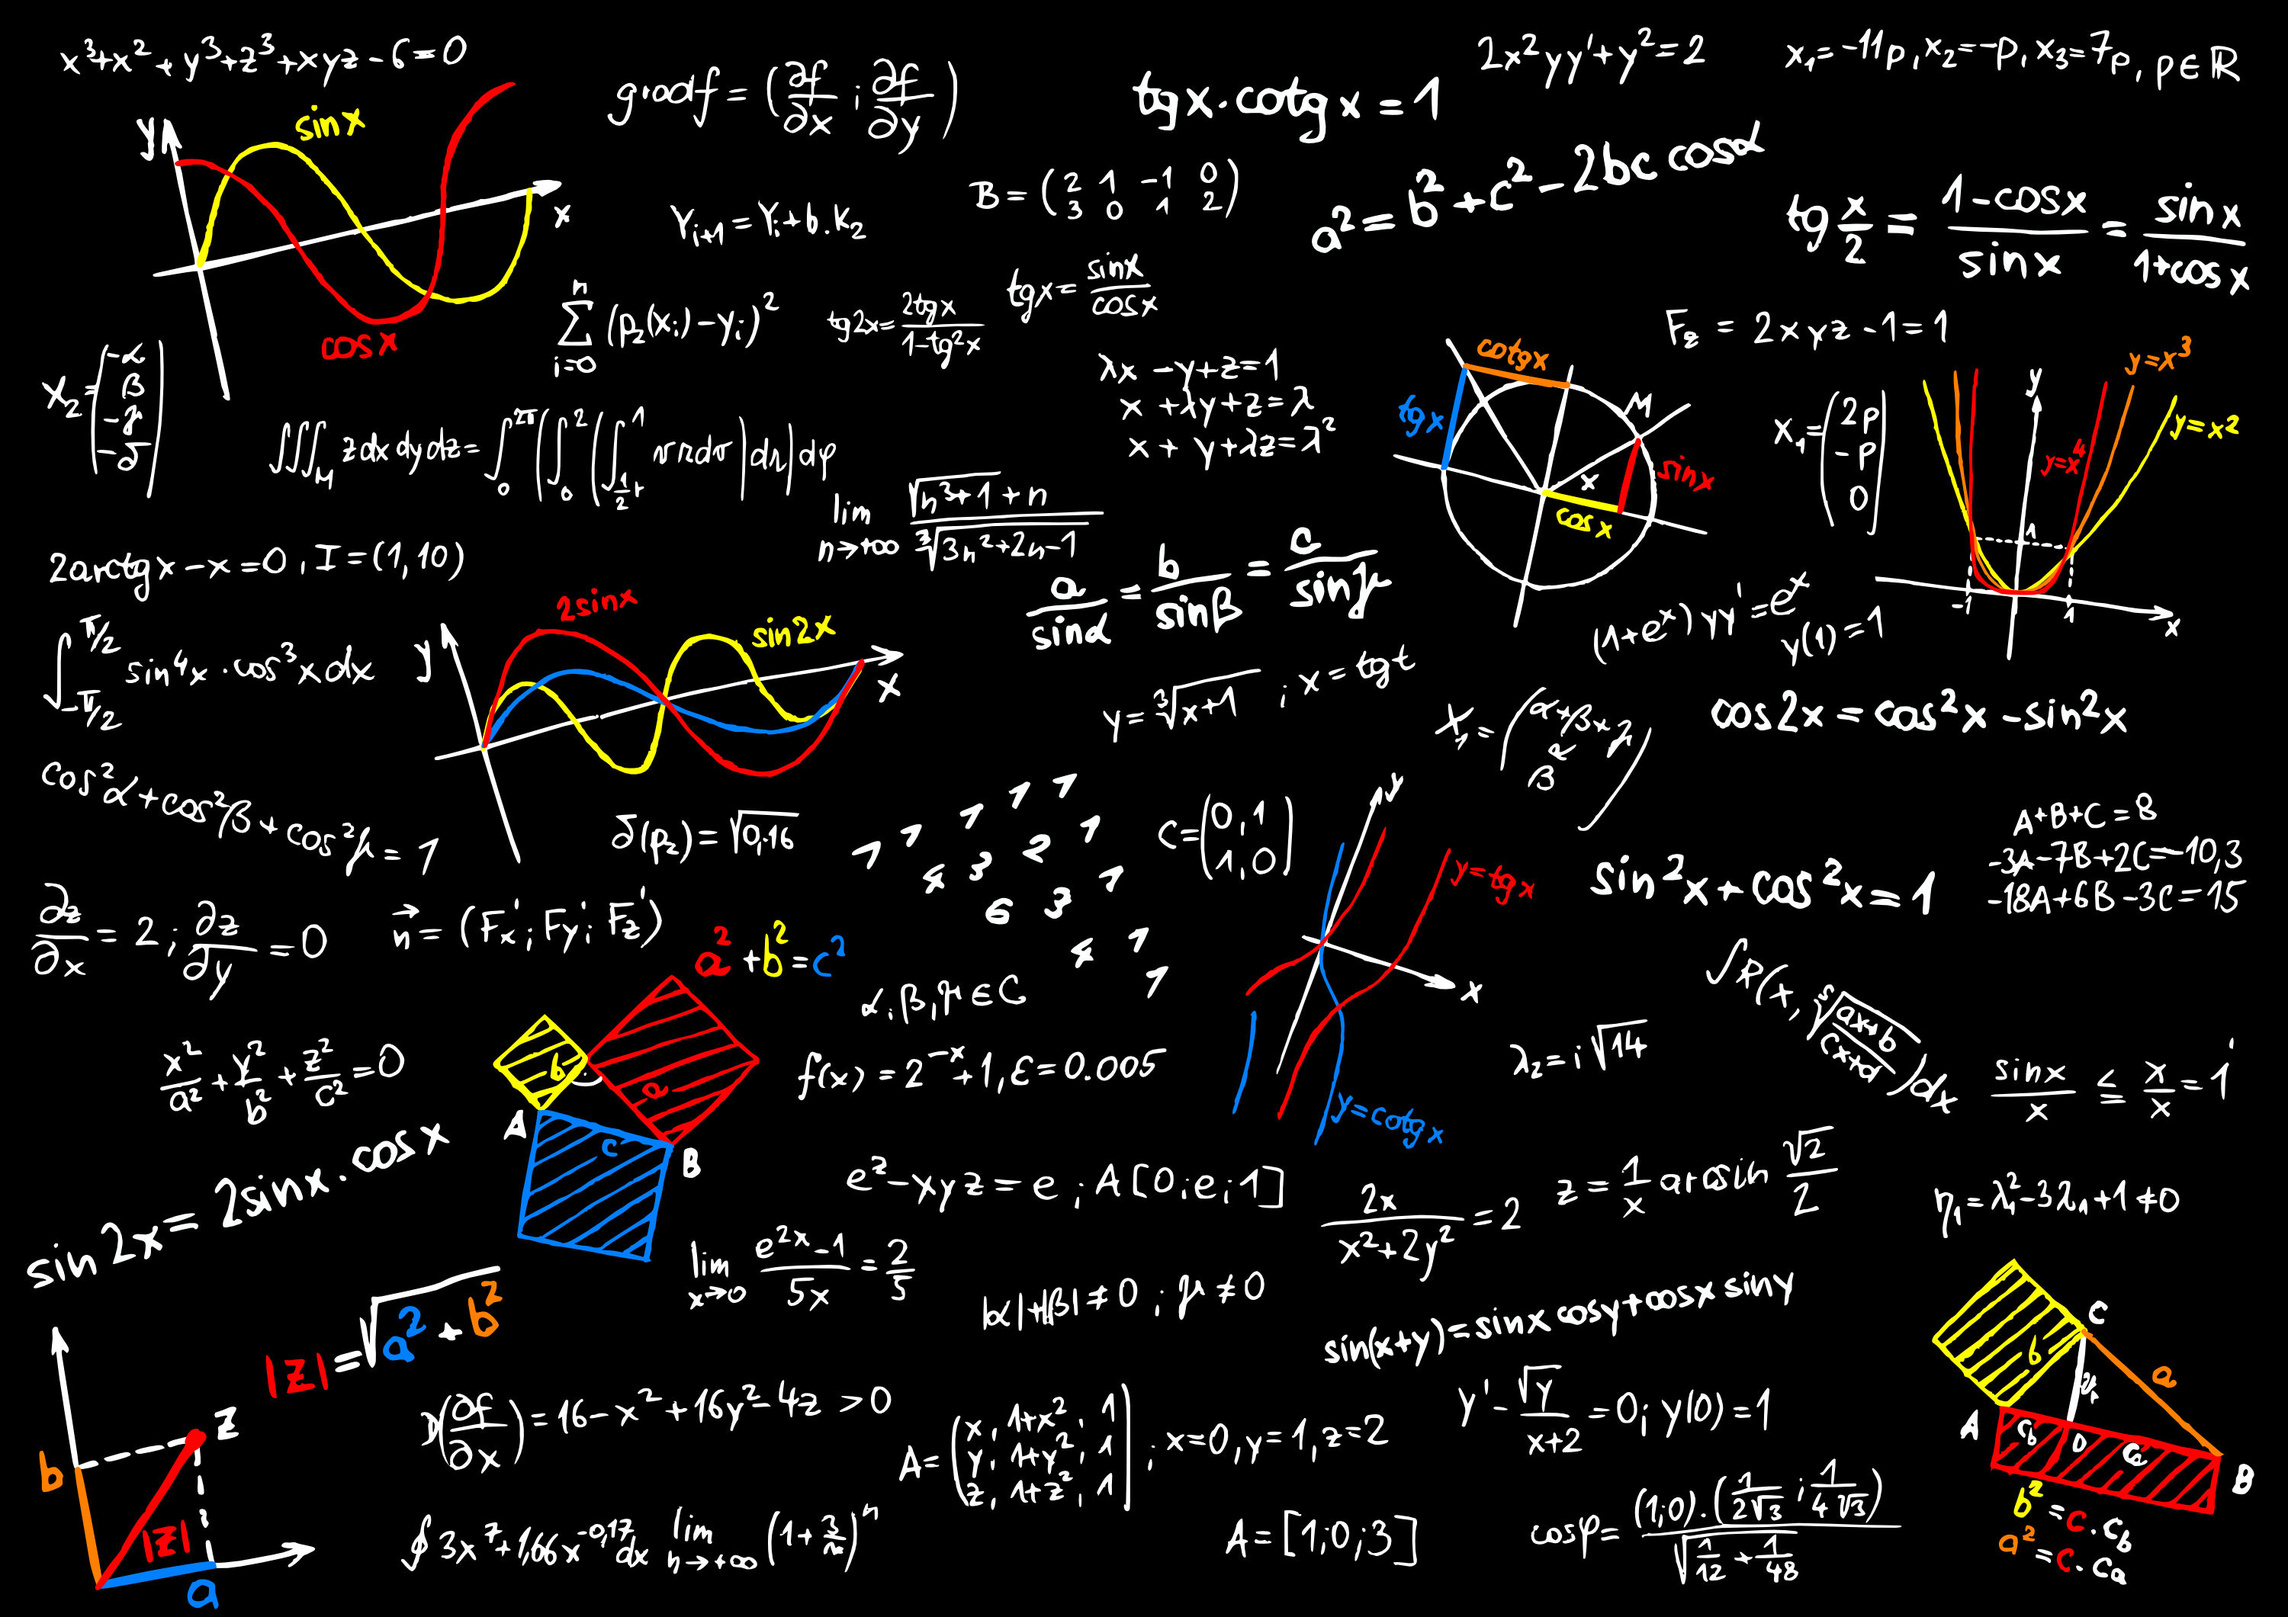 x³+x²+y³+z³+xyz-6=0
gradf = (∂f/∂x ; ∂f/∂y)
tgx·cotgx=1
2x²yy'+y²=2
x₁=-11p, x₂=-p, x₃=7p, p∈ℝ
y
sinx
x
cosx
Y_{i+1}=Y_i+b.K₂
B=(2 1 -1 0
3 0 1 2)
a²=b²+c²-2bc cosα
tg x/2 = (1-cosx)/sinx = sinx/(1+cosx)
∑_{i=0}^{n} (p₂(x_i)-y_i)²
tg2x=2tgx/(1-tg²x)
tgx=sinx/cosx
F_z=2xyz-1=1
X₂=(-α
β
-γ
-δ)
λx-y+z=1
x+λy+z=λ
x+y+λz=λ²
cotgx
tgx
M
sinx
x
cosx
X₁=(2p
-p
0)
y=x³
y
y=x²
y=x⁴
1
-1
1
x
∭_M zdxdydz=∫₀^{2π}(∫₀²(∫_{½r}^1 vrdv)dr)dφ
lim_{n→+∞} (√(n³+1)+n)/∛(3n²+2n-1)
2arctgx-x=0, I=(1,10)
a/sinα = b/sinβ = c/sinγ
(1+eˣ)yy'=eˣ
y(1)=1
∫_{-π/2}^{π/2} sin⁴x·cos³xdx
y
2sinx
sin2x
x
y=∛(x+1) ; x=tgt
X₁=(α+β+γ
α
β)
cos2x=cos²x-sin²x
cos²α+cos²β+cos²γ=1
δ(p₂)=√0,16
1 1 1 1 1
4 3 2 1
6 3 1
4 1
1
C=(0,1
1,0)
y
y=tgx
x
y=cotgx
sin²x+cos²x=1
A+B+C=8
-3A-7B+2C=-10,3
-18A+6B-3C=15
∂z/∂x=2 ; ∂z/∂y=0
n⃗=(F'x ; F'y ; F'z)
a²+b²=c²
b
a
A
c
B
α,β,γ∈C
∫R(x, ˢ√((ax+b)/(cx+d)))dx
x²/a²+y²/b²+z²/c²=0
f(x)=2⁻ˣ+1, ε=0.005
λ₂=i√14
sinx/x ≤ x/x=1
sin2x=2sinx·cosx
e^z-xyz=e ; A[0;e;1]
2x/(x²+2y²)=2
z=1/x arcsin √2/2
η₁=λ₁²-3λ₁+1≠0
lim_{x→0} (e²ˣ-1)/5x=2/5
|α|+|β|≠0 ; γ≠0
sin(x+y)=sinx cosy+cosx siny
|z|=√(a²+b²)
z
b
|z|
a
D(∂f/∂x)=16-x²+16y²-4z>0
A=(x, 1+x², 1
y, 1+y², 1
z, 1+z², 1) ; x=0, y=1, z=2
y'-√y/(x+2)=0 ; y(0)=1
C
b
a
v
A
c_b
D
c_a
B
b²=c.c_b
a²=c.c_a
∮3x⁷+1,66x^{-0,17}dx
lim_{n→+∞} (1+3/n)ⁿ
A=[1;0;3]
cosφ=(1;0).(1/2√3 ; 1/4√3)/√(1/12+1/48)